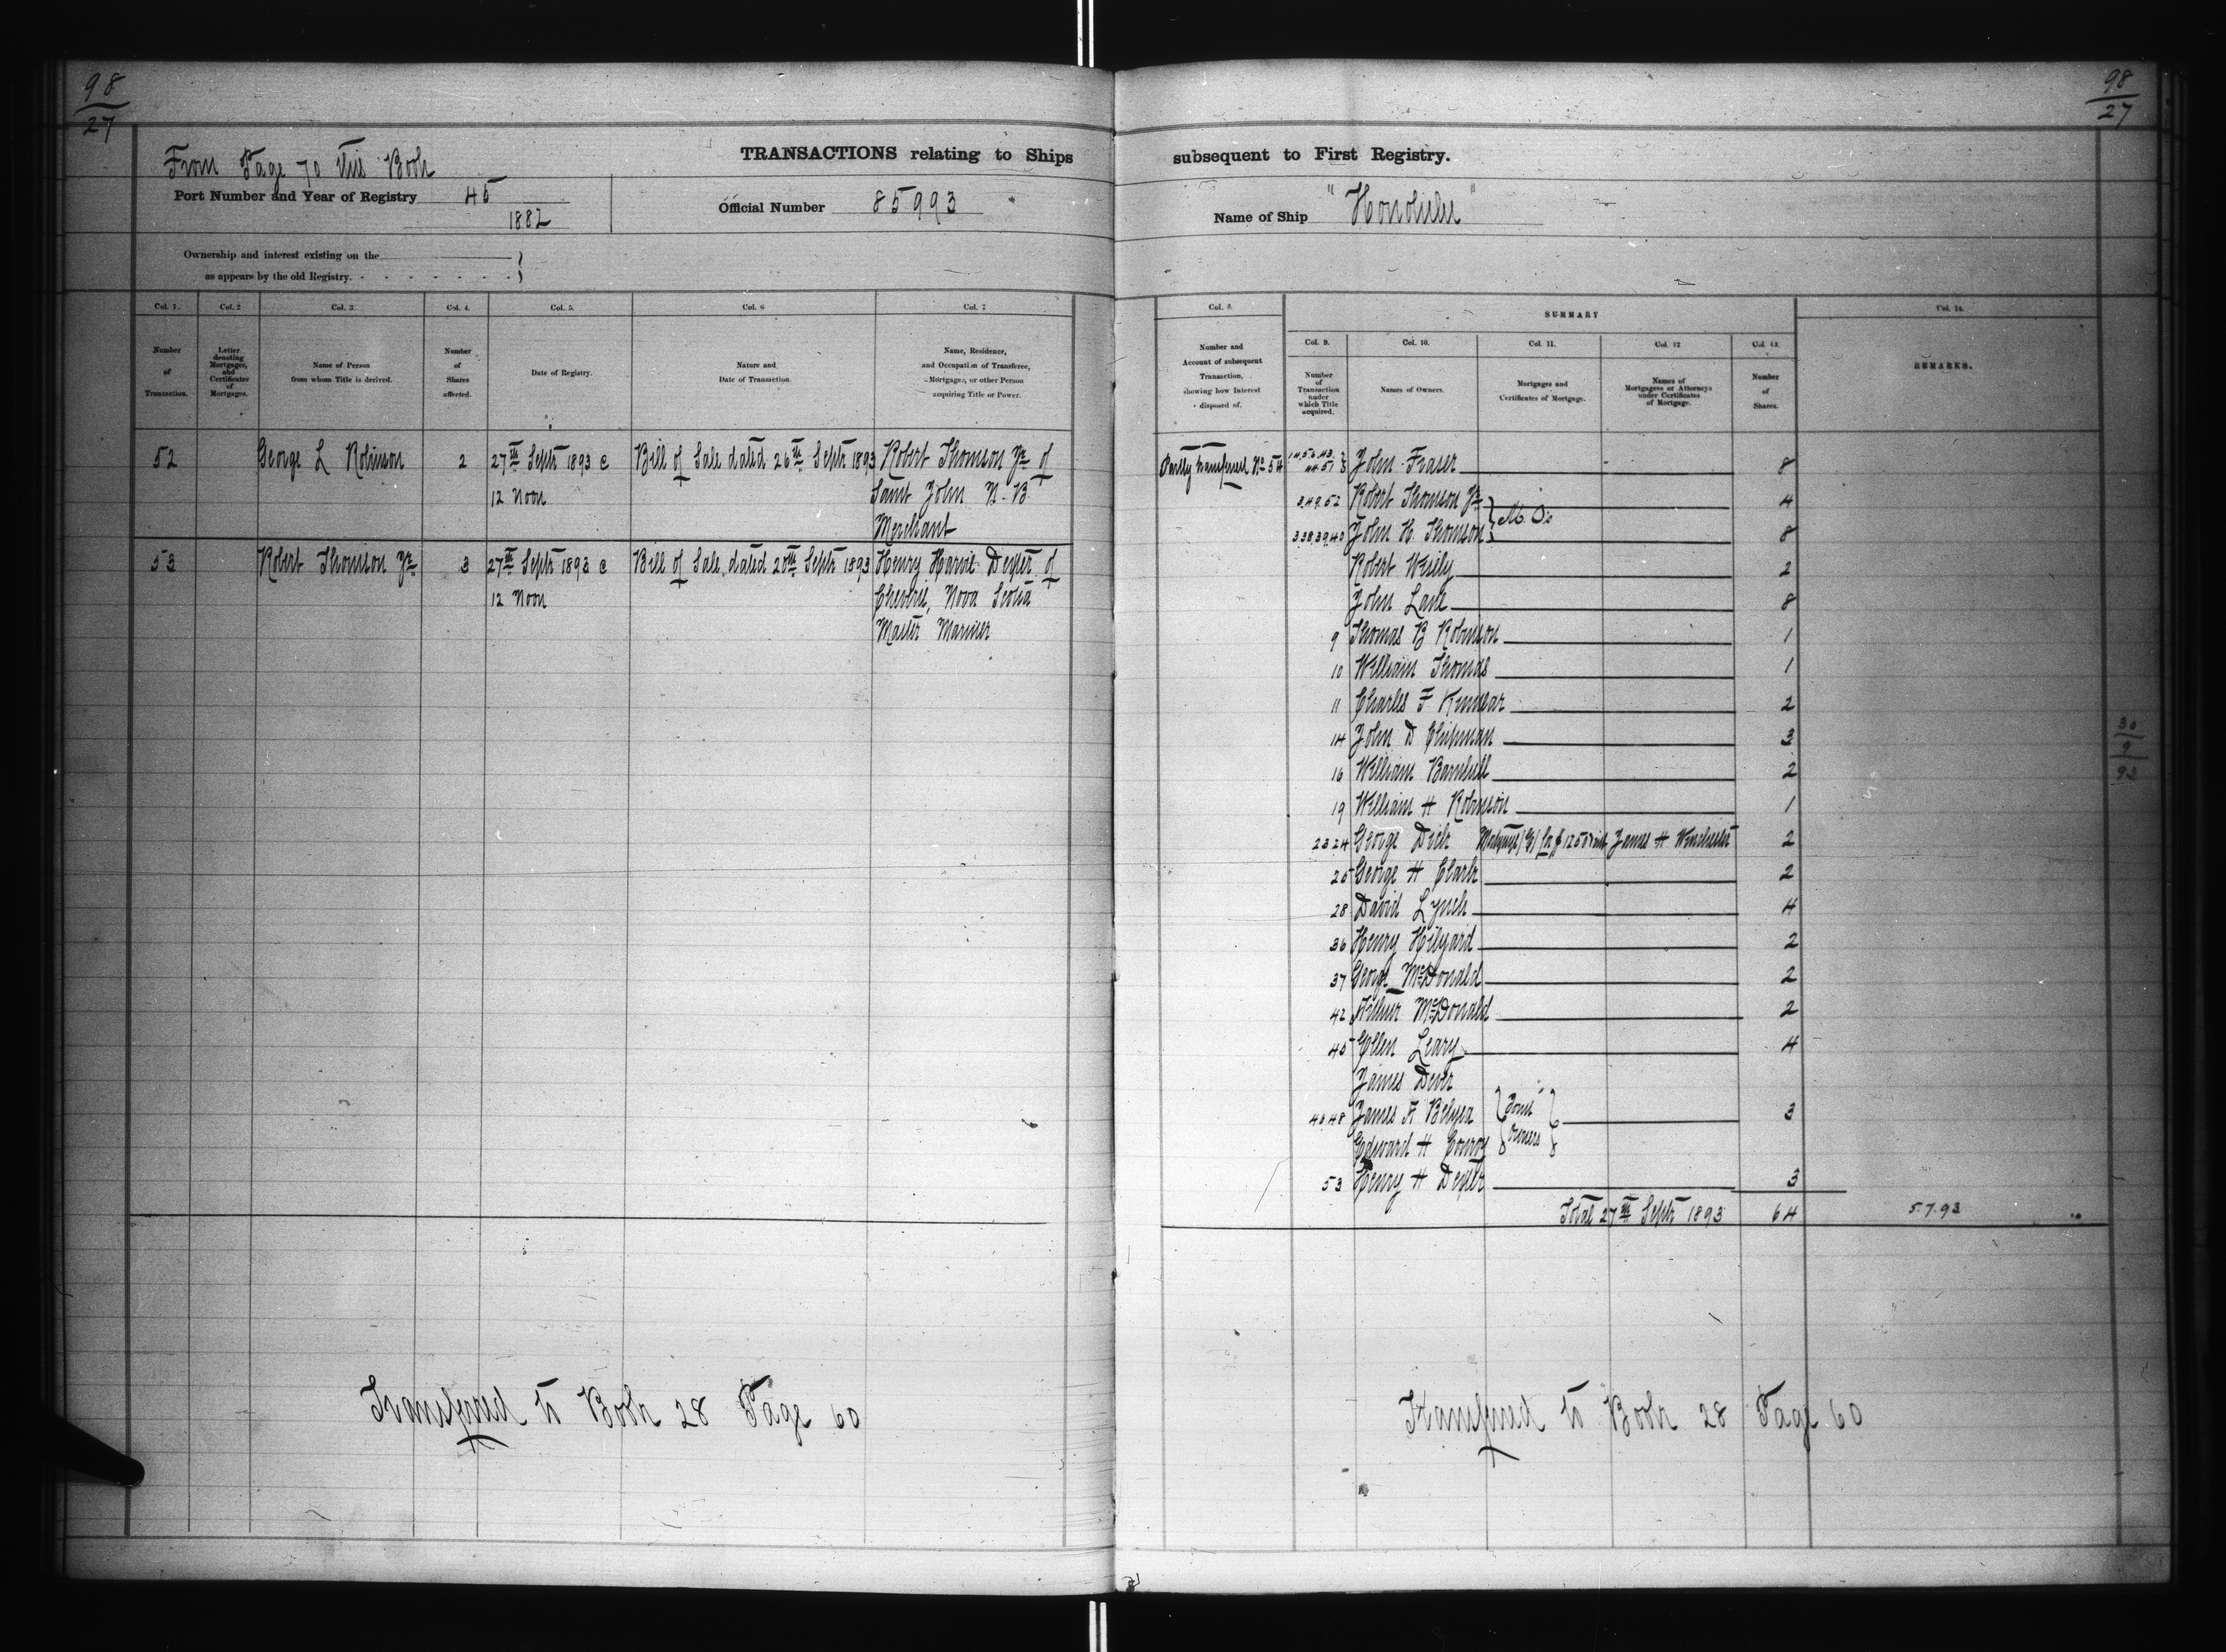 98
27
From Page 70 this Book
TRANSACTIONS relating to Ships
Port Number and Year of Registry 45
1882
Official Number 85993
Ownership and interest existing on the
as appears by the old Registry.
Col. 1. Col. 2 Col. 3. Col. 4. Col. 5. Col. 6 Col. 7
Number of Transaction.
Letter denoting Mortgages, and Certificates of Mortgages.
Name of Person from whom Title is derived.
Number of Shares affected.
Date of Registry.
Nature and Date of Transaction.
Name, Residence, and Occupation of Transferee, Mortgagee, or other Person acquiring Title or Power.
52 George L Robinson 2 27th Septr 1893 @ Bill of Sale dated 26th Septr 1893 Robert Thomson Jr. of
12 noon Saint John N. B
Merchant
53 Robert Thomson Jr. 3 27th Septr 1893 @ Bill of Sale dated 20th Septr 1893 Henry Harvie Dexter of
12 Noon Cheverie, Nova Scotia
Master Mariner
Transferred to Book 28 Page 60
98
27
subsequent to First Registry.
Name of Ship "Honolulu"
Col. 8. SUMMARY Col. 14.
Col. 9. Col. 10. Col. 11. Col. 12 Col. 13.
Number and Account of subsequent Transaction, showing how Interest disposed of.
Number of Transaction under which Title acquired.
Names of Owners.
Mortgages and Certificates of Mortgage.
Names of Mortgagees or Attorneys under Certificates of Mortgage.
Number of Shares.
REMARKS.
Partly transferred No. 54 John Fraser 8
3.49.52 Robert Thomson Jr. M.O's 4
3.38.39.40 John H. Thomson 8
Robert Wisely 2
John Lane 8
9 Thomas B Robinson 1
10 William Thomas 1
11 Charles F Kinnear 2
14 John D Chipman 3
16 William Barnhill 2
19 William H Robinson 1
23 24 George Dick Mortgage (G) for $1250 James H Winchester 2
25 George H Clark 2
28 David Lynch 4
36 Henry Hilyard 2
37 George McDonald 2
42 Arthur McDonald 2
45 Ellen Leary 4
James Dever
46 48 James F Belyea Joint Owners 3
Edward H Conroy
53 Henry H Dexter 3
Total 27th Septr 1893 64 5.7.93
30
9
93
Transferred to Book 28 Page 60